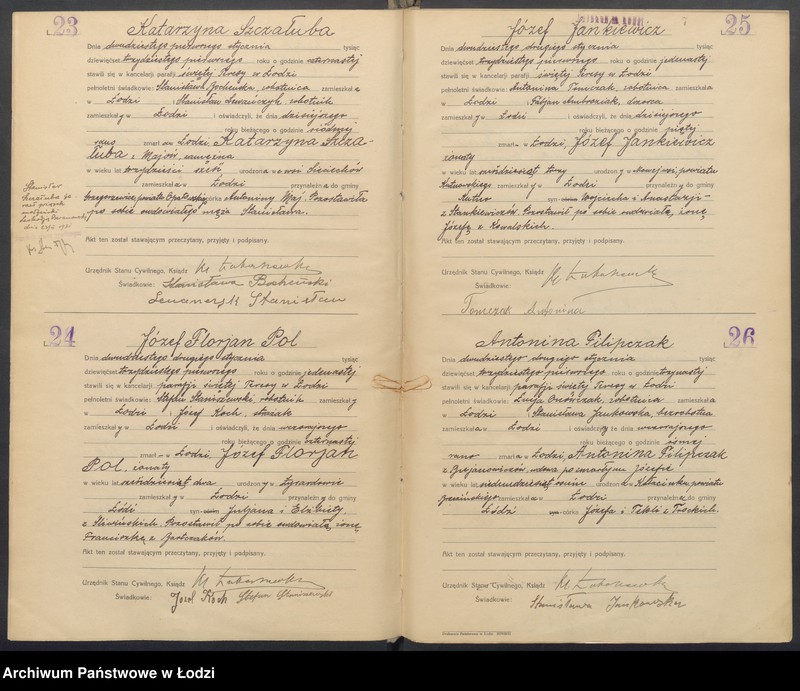 23
Katarzyna Szczałuba
Dnia dwudziestego pierwszego stycznia tysiąc
dziewięćset trzydziestego pierwszego roku o godzinie czternastej
stawili się w kancelarji parafji świętej Teresy w Łodzi
pełnoletni świadkowie: Stanisława robotnica zamieszkała
w Łodzi i Stanisław robotnik
zamieszkały w Łodzi i oświadczyli, że dnia dzisiejszego
roku bieżącego o godzinie siódmej
rano zmarła w Łodzi, Katarzyna Szcza-
łuba z Majów, zamężna
w wieku lat trzydzieści sześć, urodzona we wsi
zamieszkała w Łodzi przynależna do gminy
powiatu córka Antoniny Maj. Pozostawiła
po sobie owdowiałego męża Stanisława.
Akt ten został stawającym przeczytany, przyjęty i podpisany.
Urzędnik Stanu Cywilnego, Ksiądz
Świadkowie: Stanisława
Stanisław
24
Józef Florjan Pol
Dnia dwudziestego drugiego stycznia tysiąc
dziewięćset trzydziestego pierwszego roku o godzinie jedenastej
stawili się w kancelarji parafji świętej Teresy w Łodzi
pełnoletni świadkowie: Stefan robotnik zamieszkały
w Łodzi i Józef Koch,
zamieszkały w Łodzi i oświadczyli, że dnia wczorajszego
roku bieżącego o godzinie czternastej
zmarł w Łodzi, Józef Florjan
Pol, żonaty
w wieku lat sześćdziesiąt dwa urodzony w Żyrardowie
zamieszkały w Łodzi przynależny do gminy
Łódź syn Juljana i Elżbiety
z Śliwińskich. Pozostawił po sobie owdowiałą żonę
Franciszkę z
Akt ten został stawającym przeczytany, przyjęty i podpisany.
Urzędnik Stanu Cywilnego, Ksiądz
Świadkowie: Józef Koch Stefan
7
25
Józef Jankiewicz
Dnia dwudziestego drugiego stycznia tysiąc
dziewięćset trzydziestego pierwszego roku o godzinie jedenastej
stawili się w kancelarji parafji świętej Teresy w Łodzi
pełnoletni świadkowie: Antonina Tomczak, robotnica zamieszkała
w Łodzi i Ambroziak, dozorca
zamieszkały w Łodzi i oświadczyli, że dnia dzisiejszego
roku bieżącego o godzinie piątej
zmarł w Łodzi, Józef Jankiewicz
żonaty
w wieku lat sześćdziesiąt trzy urodzony w Nowejwsi, powiatu
Kutnowskiego zamieszkały w Łodzi przynależny do gminy
Kutno syn Wojciecha i Anastazji
z Stankiewiczów. Pozostawił po sobie owdowiałą żonę
Józefę z Kowalskich.
Akt ten został stawającym przeczytany, przyjęty i podpisany.
Urzędnik Stanu Cywilnego, Ksiądz
Świadkowie:
Tomczak Antonina
26
Antonina Filipczak
Dnia dwudziestego drugiego stycznia tysiąc
dziewięćset trzydziestego pierwszego roku o godzinie trzynastej
stawili się w kancelarji parafji świętej Teresy w Łodzi
pełnoletni świadkowie: Łucja robotnica zamieszkała
w Łodzi i Stanisława Jankowska, bezrobotna
zamieszkała w Łodzi i oświadczyły że dnia wczorajszego
roku bieżącego o godzinie ósmej
rano zmarła w Łodzi, Antonina Filipczak
z wdowa po zmarłym Józefie
w wieku lat siedemdziesiąt osiem urodzona w powiatu
Brzezińskiego zamieszkała w Łodzi przynależna do gminy
Łódź córka Józefa i Tekli z Trockich.
Akt ten został stawającym przeczytany, przyjęty i podpisany.
Urzędnik Stanu Cywilnego, Ksiądz
Świadkowie:
Stanisława Jankowska
Archiwum Państwowe w Łodzi